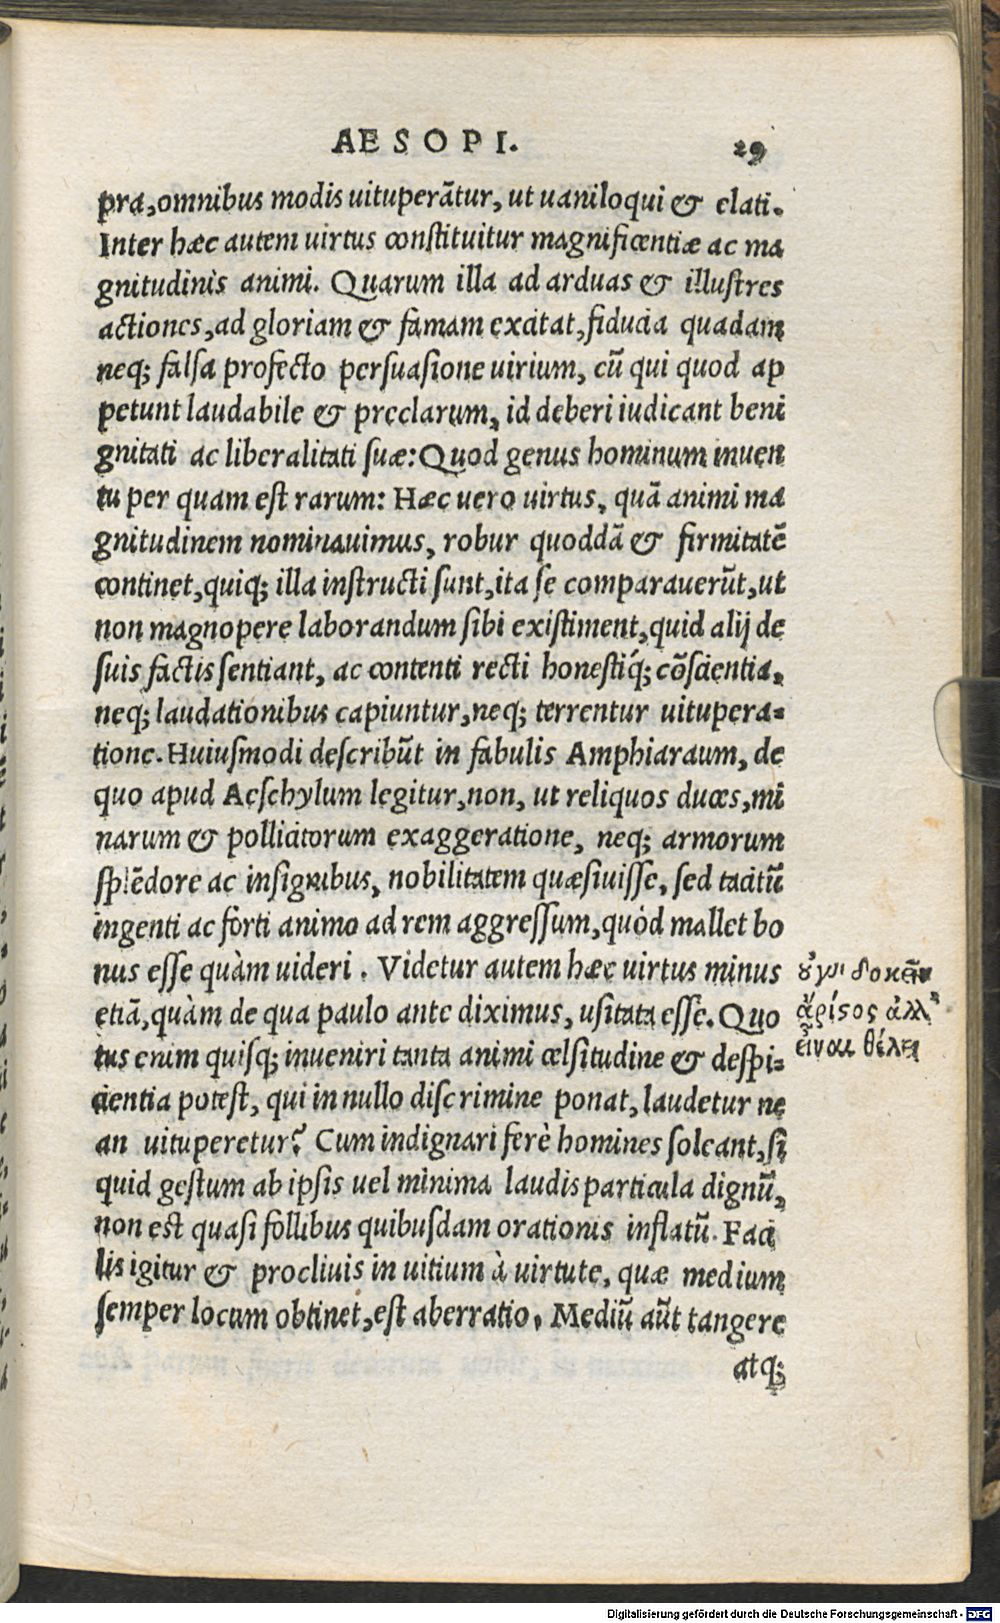 AESOPI. 29
pra, omnibus modis uituperātur, ut uaniloqui & elati.
Inter hæc autem uirtus constituitur magnificentiæ ac ma
gnitudinis animi. Quarum illa ad arduas & illustres
actiones, ad gloriam & famam excitat, fiducia quadam
neq; falsa profecto persuasione uirium, cū qui quod ap
petunt laudabile & preclarum, id deberi iudicant beni
gnitati ac liberalitati suæ: Quod genus hominum inuen
tu per quam est rarum: Hæc uero uirtus, quā animi ma
gnitudinem nominauimus, robur quoddā & firmitatē
continet, quiq; illa instructi sunt, ita se comparauerūt, ut
non magnopere laborandum sibi existiment, quid alij de
suis factis sentiant, ac contenti recti honestiq́; cōscientia,
neq; laudationibus capiuntur, neq; terrentur uitupera-
tione. Huiusmodi describūt in fabulis Amphiaraum, de
quo apud Aeschylum legitur, non, ut reliquos duces, mi
narum & pollicitorum exaggeratione, neq; armorum
splēdore ac insignibus, nobilitatem quæsiuisse, sed tacitū
ingenti ac forti animo ad rem aggressum, quòd mallet bo
nus esse quàm uideri. Videtur autem hæc uirtus minus
etiā, quàm de qua paulo ante diximus, usitata esse. Quo
tus enim quisq; inueniri tanta animi celsitudine & despi-
cientia potest, qui in nullo discrimine ponat, laudetur ne
an uituperetur? Cum indignari ferè homines soleant, si
quid gestum ab ipsis uel minima laudis particula dignū,
non est quasi follibus quibusdam orationis inflatū. Faci
lis igitur & procliuis in uitium à uirtute, quæ medium
semper locum obtinet, est aberratio. Mediū aūt tangere
atq;
οὐ γὰρ δοκεῖν
ἄριστος ἀλλ'
εἶναι θέλει
Digitalisierung gefördert durch die Deutsche Forschungsgemeinschaft - DFG